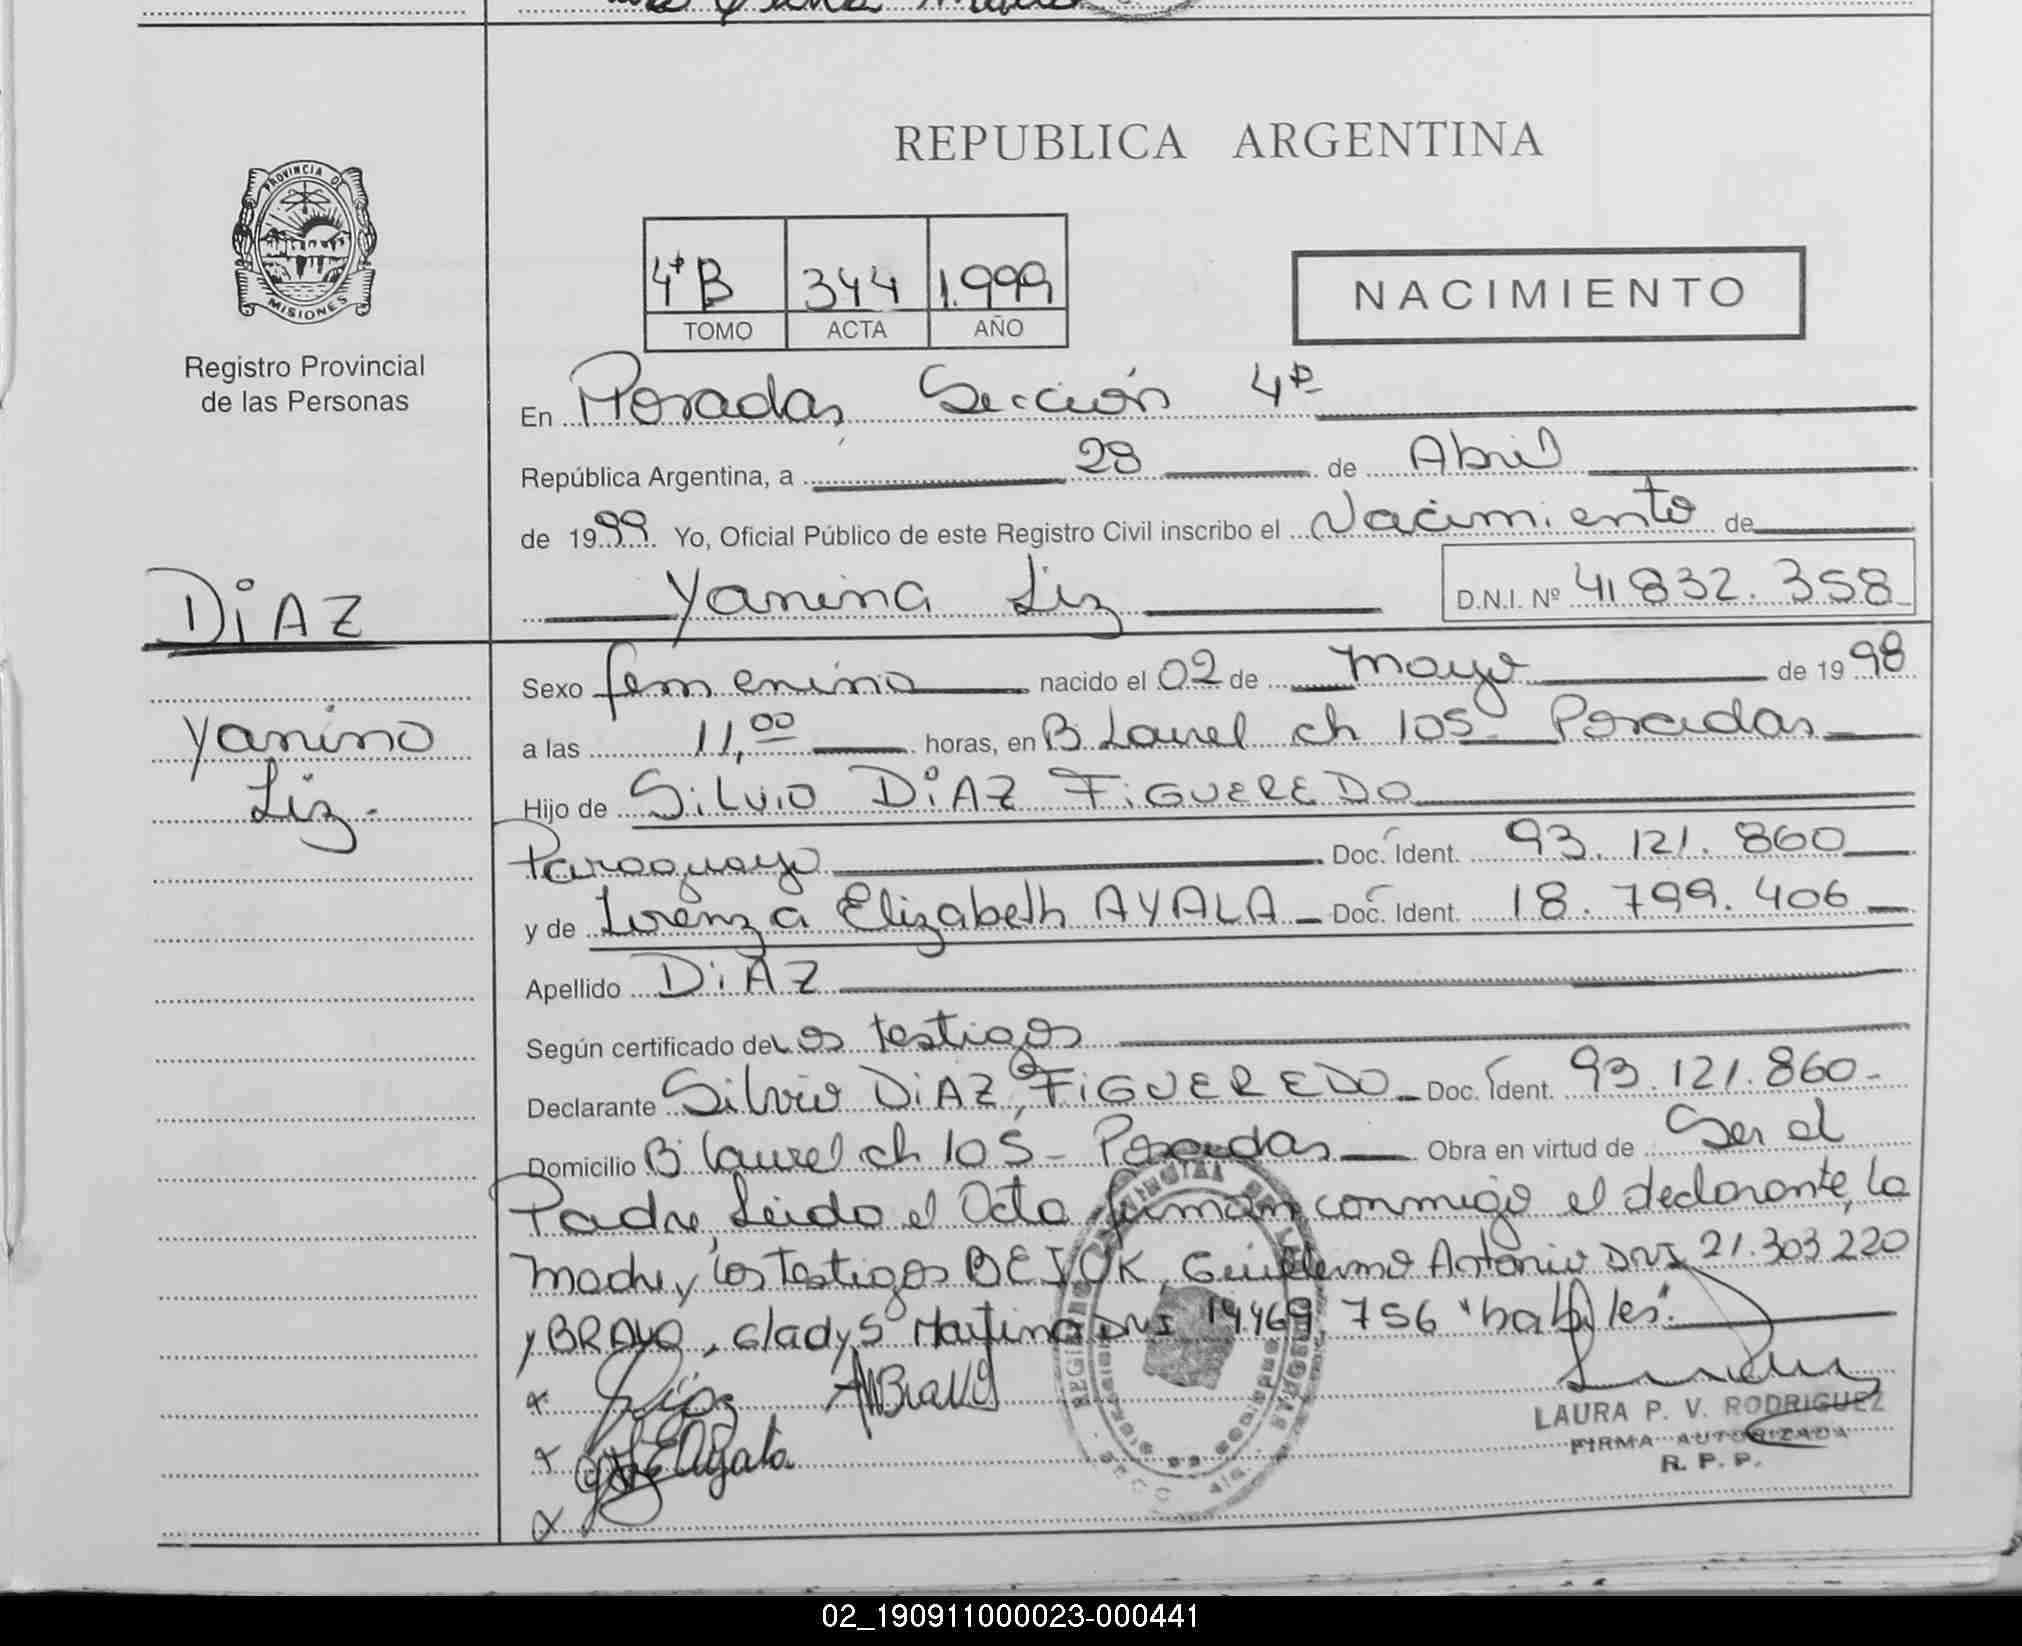 REPUBLICA ARGENTINA
PROVINCIA DE
MISIONES
Registro Provincial
de las Personas
4ª B 344 1.999
TOMO ACTA AÑO
NACIMIENTO
En Posadas, Sección 4ª
República Argentina, a 28 de Abril
de 1999 Yo, Oficial Público de este Registro Civil inscribo el Nacimiento de
Yanina Liz D.N.I. Nº 41.832.358
DiAZ
Yanina
Liz.-
Sexo femenino nacido el 02 de mayo de 1998
a las 11,00 horas, en B. Laurel ch 105 - Posadas
Hijo de SiLViO DiAZ FiGUEREDO
Paraguayo Doc. Ident. 93.121.860
y de Lorenza Elizabeth AYALA Doc. Ident. 18.799.406
Apellido DiAZ
Según certificado de Los testigos
Declarante Silvio DiAZ FiGUEREDO Doc. Ident. 93.121.860-
Domicilio B. Laurel ch 105 - Posadas Obra en virtud de Ser el
Padre, Leido el Acta firman conmigo el declarante, la
madre y los testigos Guillermo Antonio DNI 21.303.220
y BRAVO, Gladys Martina DNI 14.469.756 "habiles".
LAURA P. V. RODRIGUEZ
FIRMA AUTORIZADA
R. P. P.
02_190911000023-000441